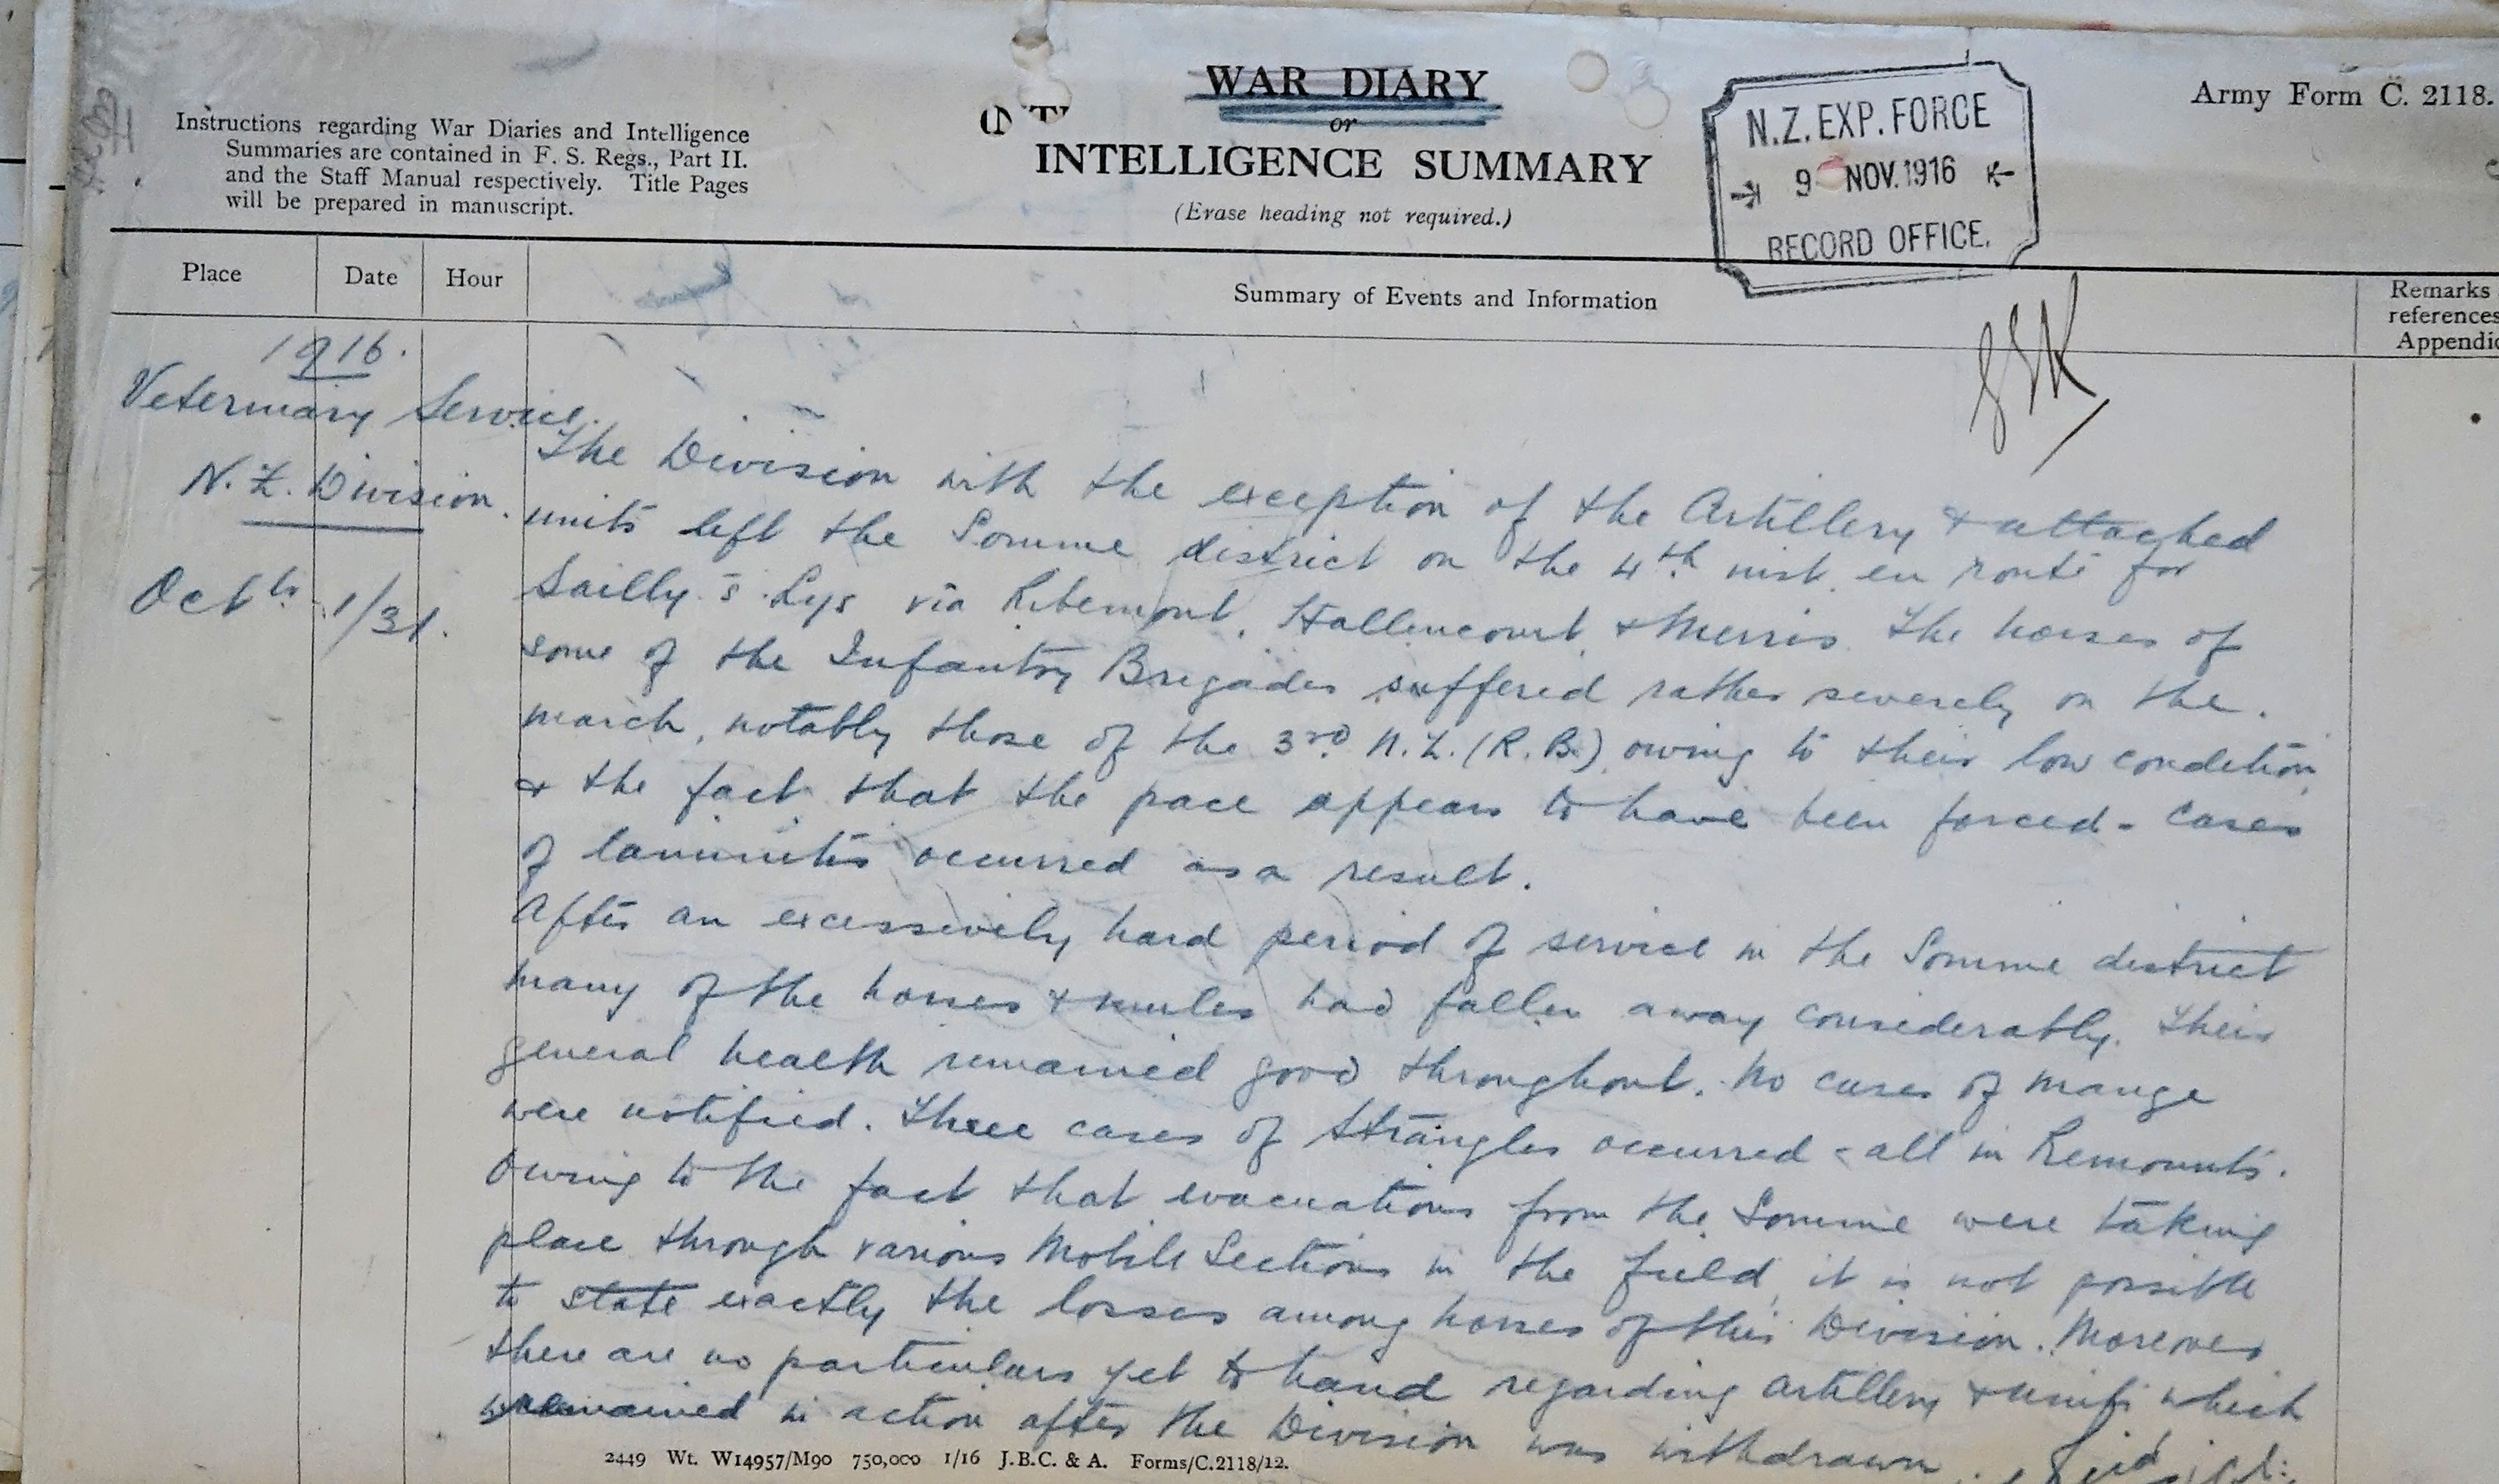 WAR DIARY
or
INTELLIGENCE SUMMARY
(Erase heading not required.)
Army Form C. 2118.
Instructions regarding War Diaries and Intelligence
Summaries are contained in F. S. Regs., Part II.
and the Staff Manual respectively. Title Pages
will be prepared in manuscript.
N.Z. EXP. FORCE
9 NOV. 1916
RECORD OFFICE.
Place
Date
Hour
Summary of Events and Information
Remarks
references
Appendic
1916.
Veterinary Service.
N.Z. Division.
Oct 1/31.
The Division with the exception of the Artillery & attached
units left the Somme district on the 4th inst. en route for
Sailly s. Lys via Ribemont, Hallencourt, & Merris. The horses of
some of the Infantry Brigades suffered rather severely on the.
march, notably those of the 3rd N.Z. (R.B.) owing to their low condition
& the fact that the pace appears to have been forced - cases
of laminitis occurred as a result.
After an excessively hard period of service in the Somme district
many of the horses & mules had fallen away considerably. Their
general health remained good throughout. No cases of mange
were notified. Three cases of Strangles occurred - all in Remounts.
Owing to the fact that evacuations from the Somme were taking
place through various Mobile Sections in the field, it is not possible
to state exactly the losses among horses of this Division. Moreover
there are no particulars yet to hand regarding Artillery & units which
remained in action after the Division was withdrawn.
2449 Wt. W14957/M90 750,000 1/16 J.B.C. & A. Forms/C.2118/12.